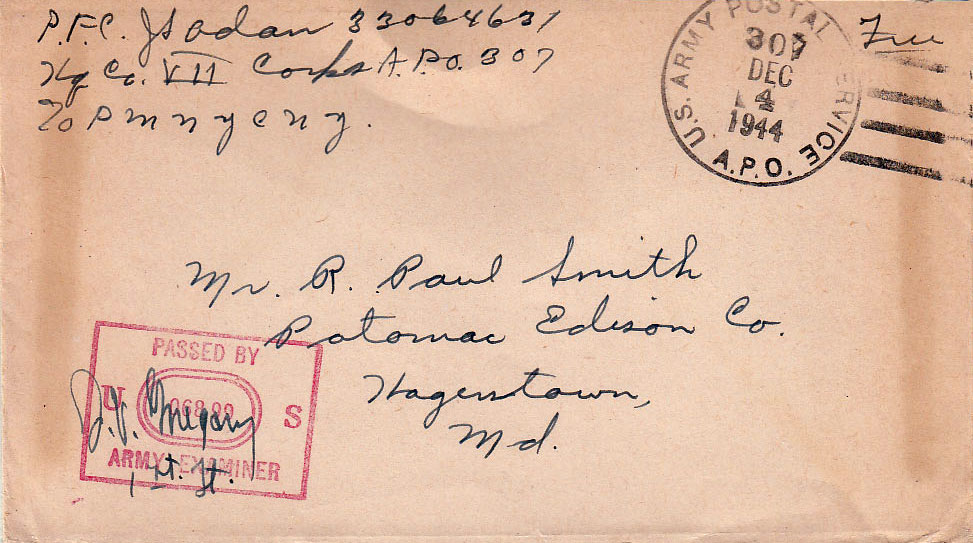 P.F.C. 33064631
Hq Co. VII Corps A.P.O. 307
℅ P m n y c n y.
U.S. ARMY POSTAL SERVICE
307
DEC
4
1944
A.P.O.
Free
Mr. R. Paul Smith
Potomac Edison Co.
Hagerstown,
Md.
PASSED BY
U S
ARMY EXAMINER
Gregory
1 Lt.